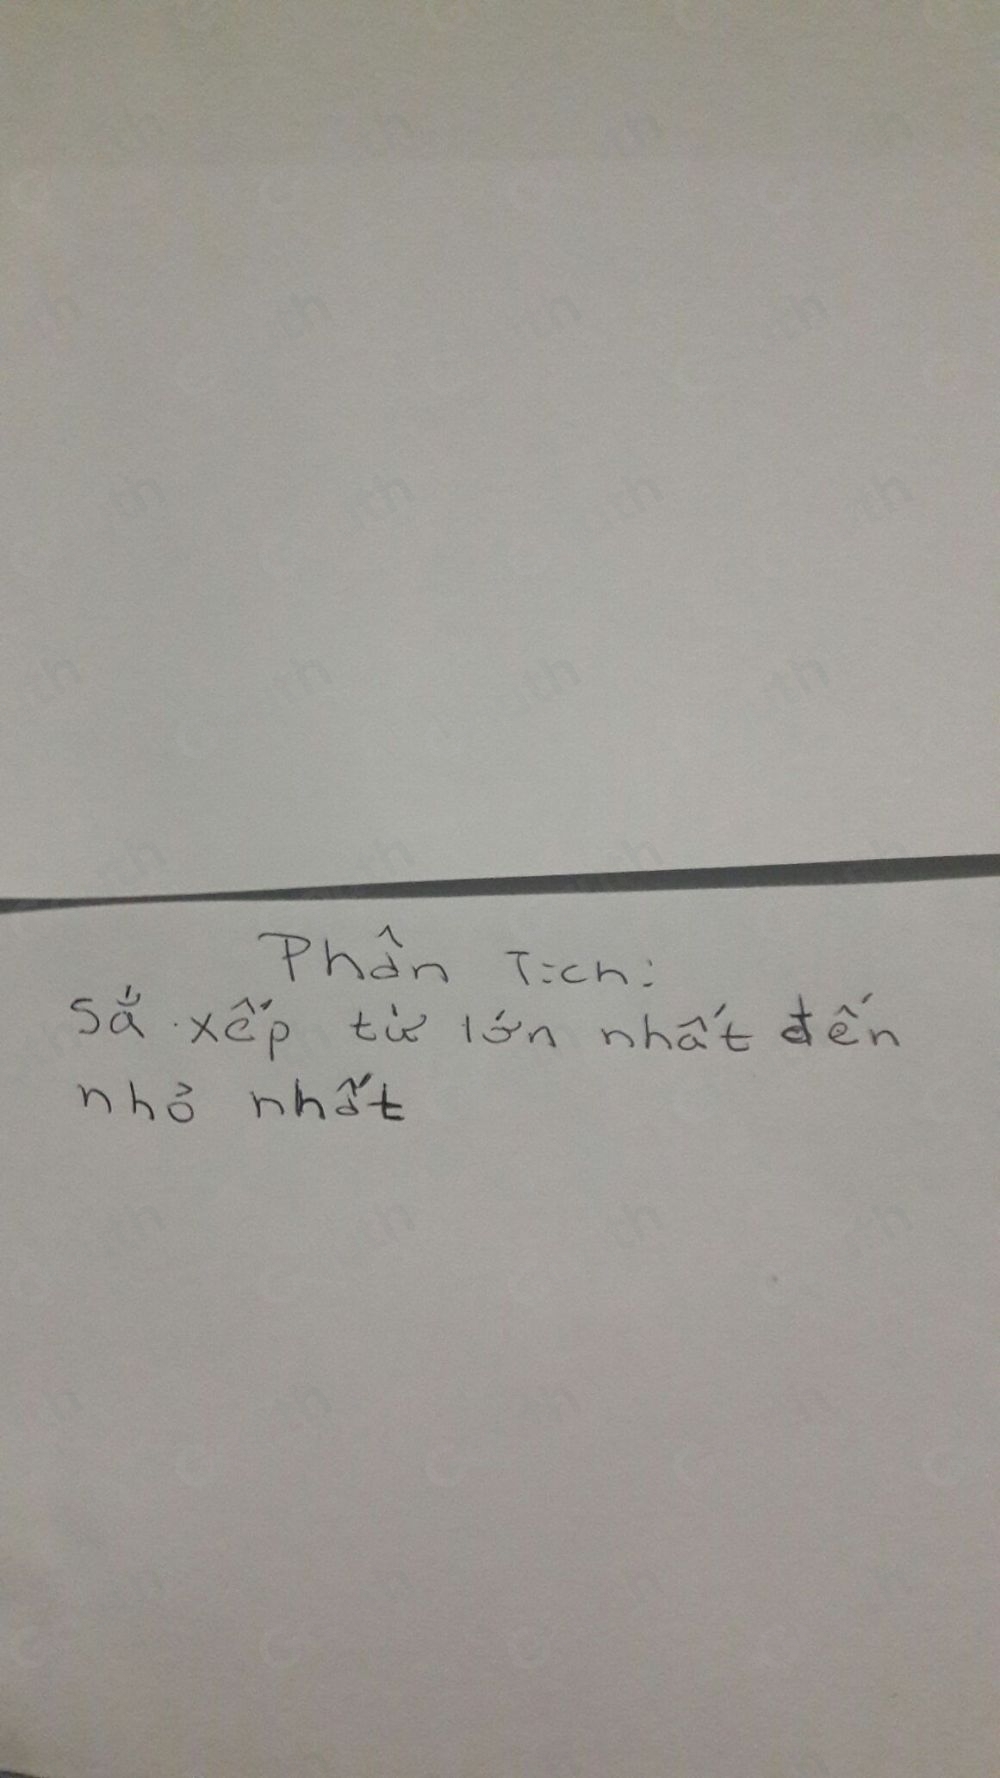 Phân Tích:
Sắ xếp từ lớn nhất đến
nhỏ nhất